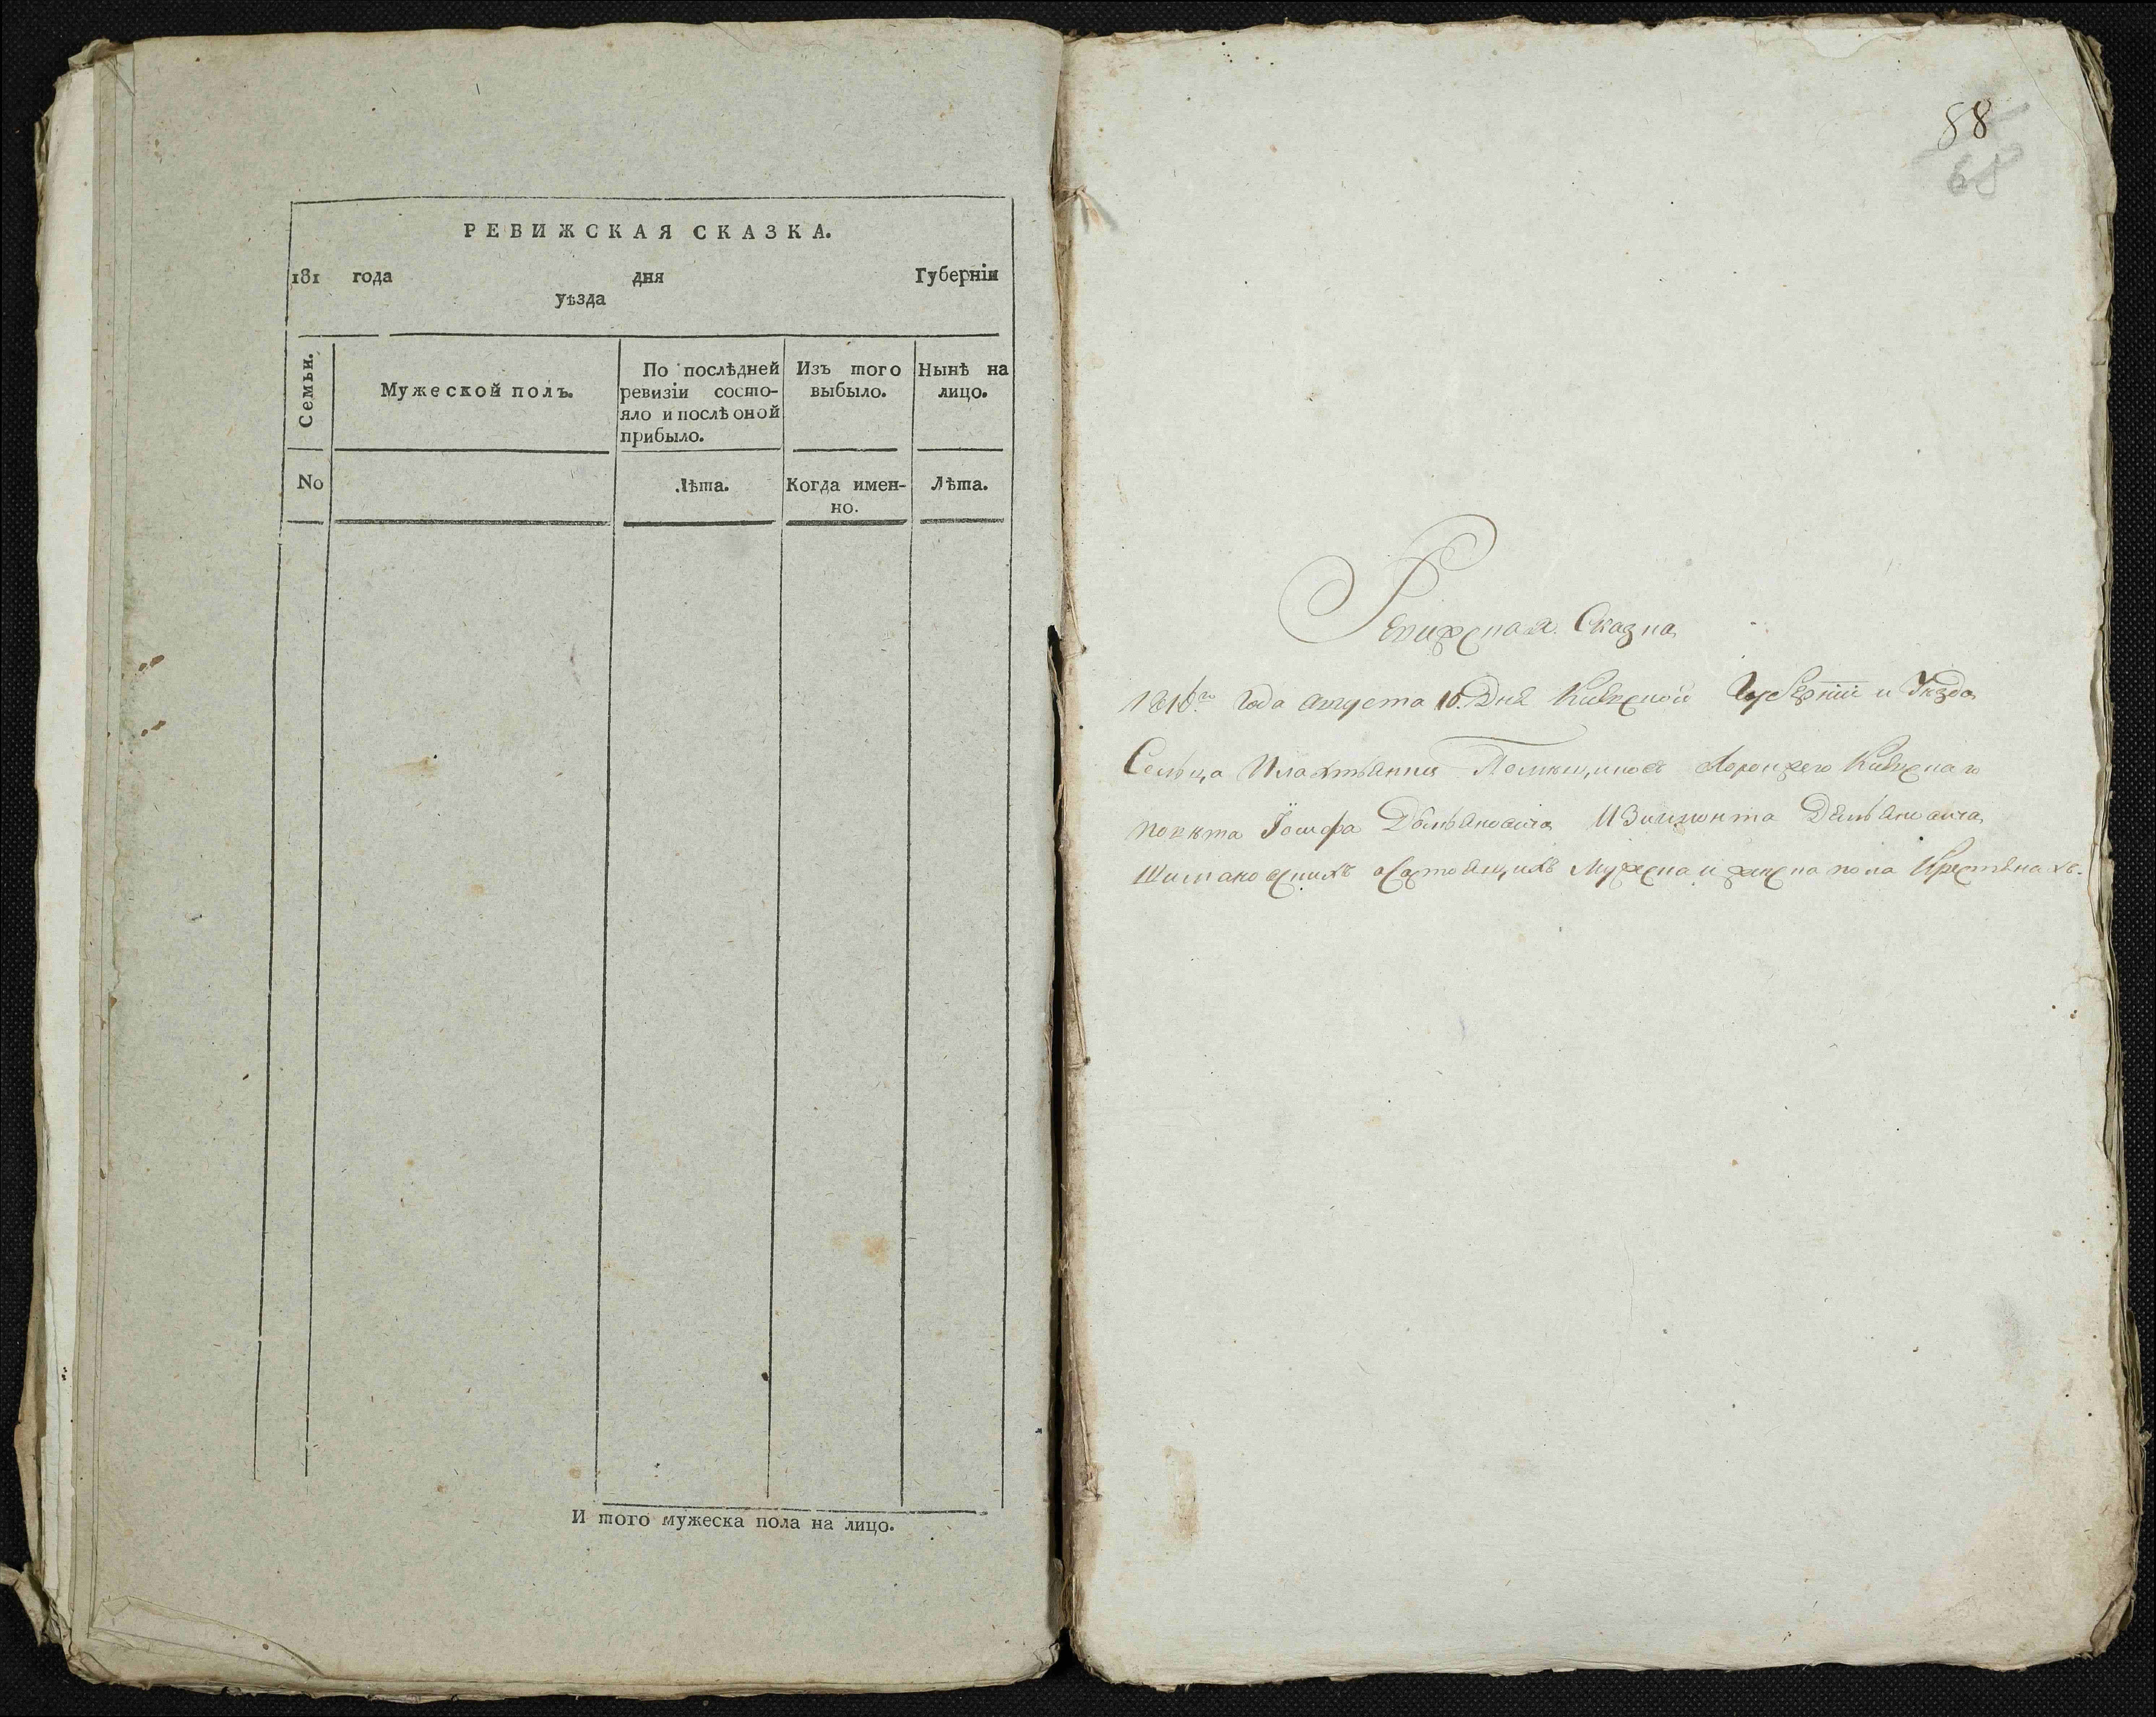 РЕВИЖСКАЯ СКАЗКА.
181 года дня Губерніи
уѣзда
Семьи.
Мужеской полъ.
По послѣдней
ревизіи состо-
яло и послѣ оной
прибыло.
Изъ того
выбыло.
Нынѣ на
лицо.
No
Лѣта.
Когда имен-
но.
Лѣта.
И того мужеска пола на лицо.
88
68
Ревижская Сказка
года августа 10. Дня Киевской Губернии и Уезда
Сельца Плахтянки Помещиков Киевскаго
повета Іосифа Демьяновича Демьановича
Шимановских о Состоящих Мужеска и женска пола Крестянах.